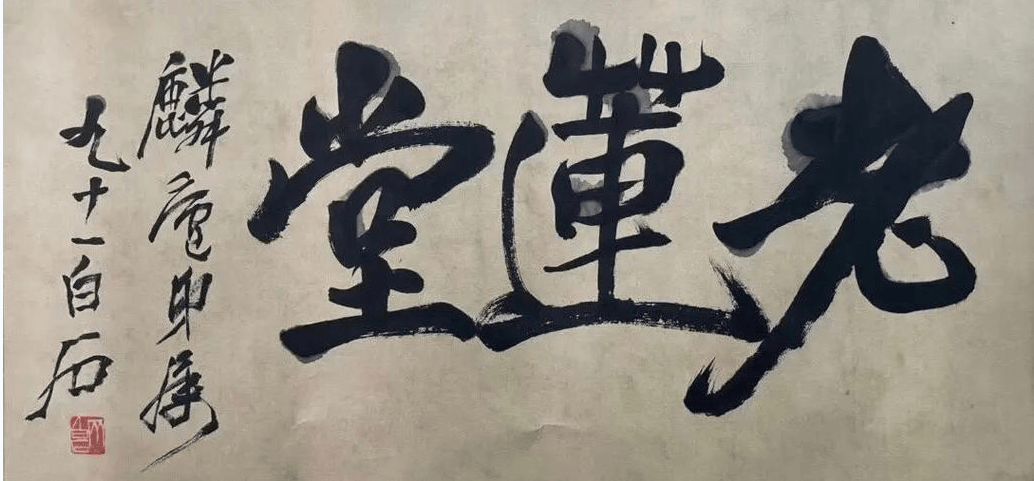 老蓮堂
麟廬印屬
九十一白石